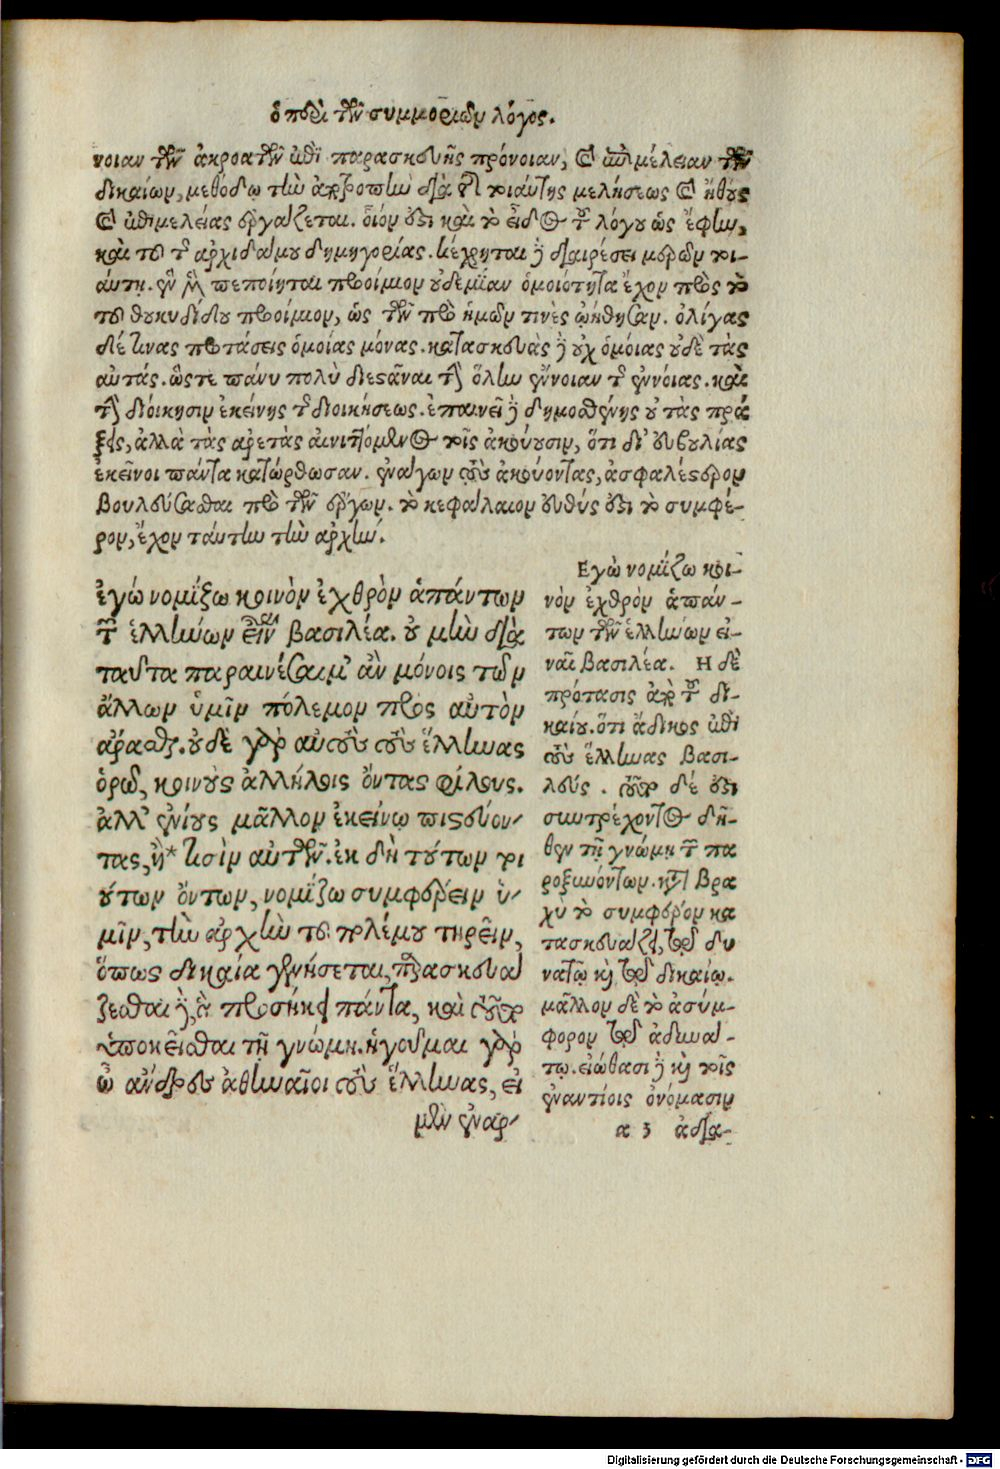 ὁ περὶ τῶν συμμοριῶν λόγος.
νοιαν τῶν ἀκροατῶν ἐπὶ παρασκευῆς πρόνοιαν, καὶ ἐπιμέλειαν τῶν
δικαίων, μεθόδῳ τὴν ἀποτροπὴν διὰ τῆς τοιαύτης μελήσεως καὶ ἤθους
καὶ ἐπιμελείας ἐργάζεται. οἷόν ἐστι καὶ τὸ εἶδος τοῦ λόγου ὡς ἔφην,
καὶ τὸ τοῦ ἀρχιδάμου δημηγορίας. κέχρηται δὲ διαιρέσει μερῶν τοι-
αύτῃ. ἓν μὲν πεποίηται προοίμιον οὐδεμίαν ὁμοιότητα ἔχον πρὸς τὸ
τοῦ θουκυδίδου προοίμιον, ὡς τῶν πρὸ ἡμῶν τινὲς ᾠήθησαν. ὀλίγας
δέ τινας προτάσεις ὁμοίας μόνας. κατασκευὰς δὲ οὐχ ὁμοίας οὐδὲ τὰς
αὐτάς. ὥστε πάνυ πολὺ διεστάναι τὴν ὅλην ἔννοιαν τῆς ἐννοίας. καὶ
τὴν διοίκησιν ἐκείνης τῆς διοικήσεως. ἐπαινεῖ δὲ δημοσθένης οὐ τὰς πρά
ξεις, ἀλλὰ τὰς ἀρετὰς αἰνιττόμενος τοῖς ἀκούουσιν, ὅτι δι' εὐβουλίας
ἐκεῖνοι πάντα κατώρθωσαν. ἐνάγων τοὺς ἀκούοντας, ἀσφαλέστερον
βουλεύσασθαι πρὸ τῶν ἔργων. τὸ κεφάλαιον εὐθύς ἐστι τὸ συμφέ-
ρον, ἔχον ταύτην τὴν ἀρχήν.
ἐγώ νομίζω κοινὸν ἐχθρὸν ἁπάντων
τῶν ἑλλήνων εἶναι βασιλέα. οὐ μὴν διὰ
ταῦτα παραινέσαιμ' ἂν μόνοις τῶν
ἄλλων ὑμῖν πόλεμον πρὸς αὐτὸν
ἄρασθαι. οὐδὲ γὰρ αὐτοὺς τοὺς ἕλληνας
ὁρῶ, κοινοὺς ἀλλήλοις ὄντας φίλους.
ἀλλ' ἐνίους μᾶλλον ἐκείνῳ πιστεύον-
τας, ἢ* τισὶν αὐτῶν. ἐκ δὴ τούτων τοι
ούτων ὄντων, νομίζω συμφέρειν ὑ-
μῖν, τὴν ἀρχὴν τοῦ πολέμου τηρεῖν,
ὅπως δικαία γενήσεται, παρασκευά
ζεσθαι δὲ, ἃ προσήκει πάντα, καὶ τοῦθ'
ὑποκεῖσθαι τῇ γνώμῃ. ἡγοῦμαι γὰρ
ὦ ἄνδρες ἀθηναῖοι τοὺς ἕλληνας, εἰ
μὲν ἐναρ-
Ἐγὼ νομίζω κοι-
νὸν ἐχθρὸν ἁπάν-
των τῶν ἑλλήνων εἶ-
ναι βασιλέα. Ἡ δὲ
πρότασις ἀπὸ τοῦ δι-
καίου. ὅτι ἄδικος ἐπὶ
τοὺς ἕλληνας βασι-
λεύς. τοῦτο δέ ἐστι
συντρέχοντος δῆ-
θεν τῇ γνώμῃ τῶν πα
ροξυνόντων. κατὰ βρα
χὺ τὸ συμφέρον κα
τασκευάζει, τῷ δυ
νατῷ καὶ τῷ δικαίῳ.
μᾶλλον δὲ τὸ ἀσύμ-
φορον τῷ ἀδυνά-
τῳ. εἰώθασι δὲ καὶ τοῖς
ἐναντίοις ὀνόμασιν
α 3 ἀδια-
Digitalisierung gefördert durch die Deutsche Forschungsgemeinschaft - DFG